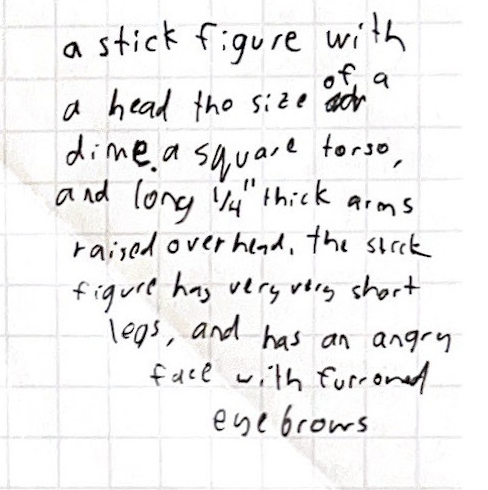 a stick figure with
a head the size of a
dime. a square torso,
and long 1/4" thick arms
raised overhead. the stick
figure has very very short
legs, and has an angry
face with furrowed
eyebrows